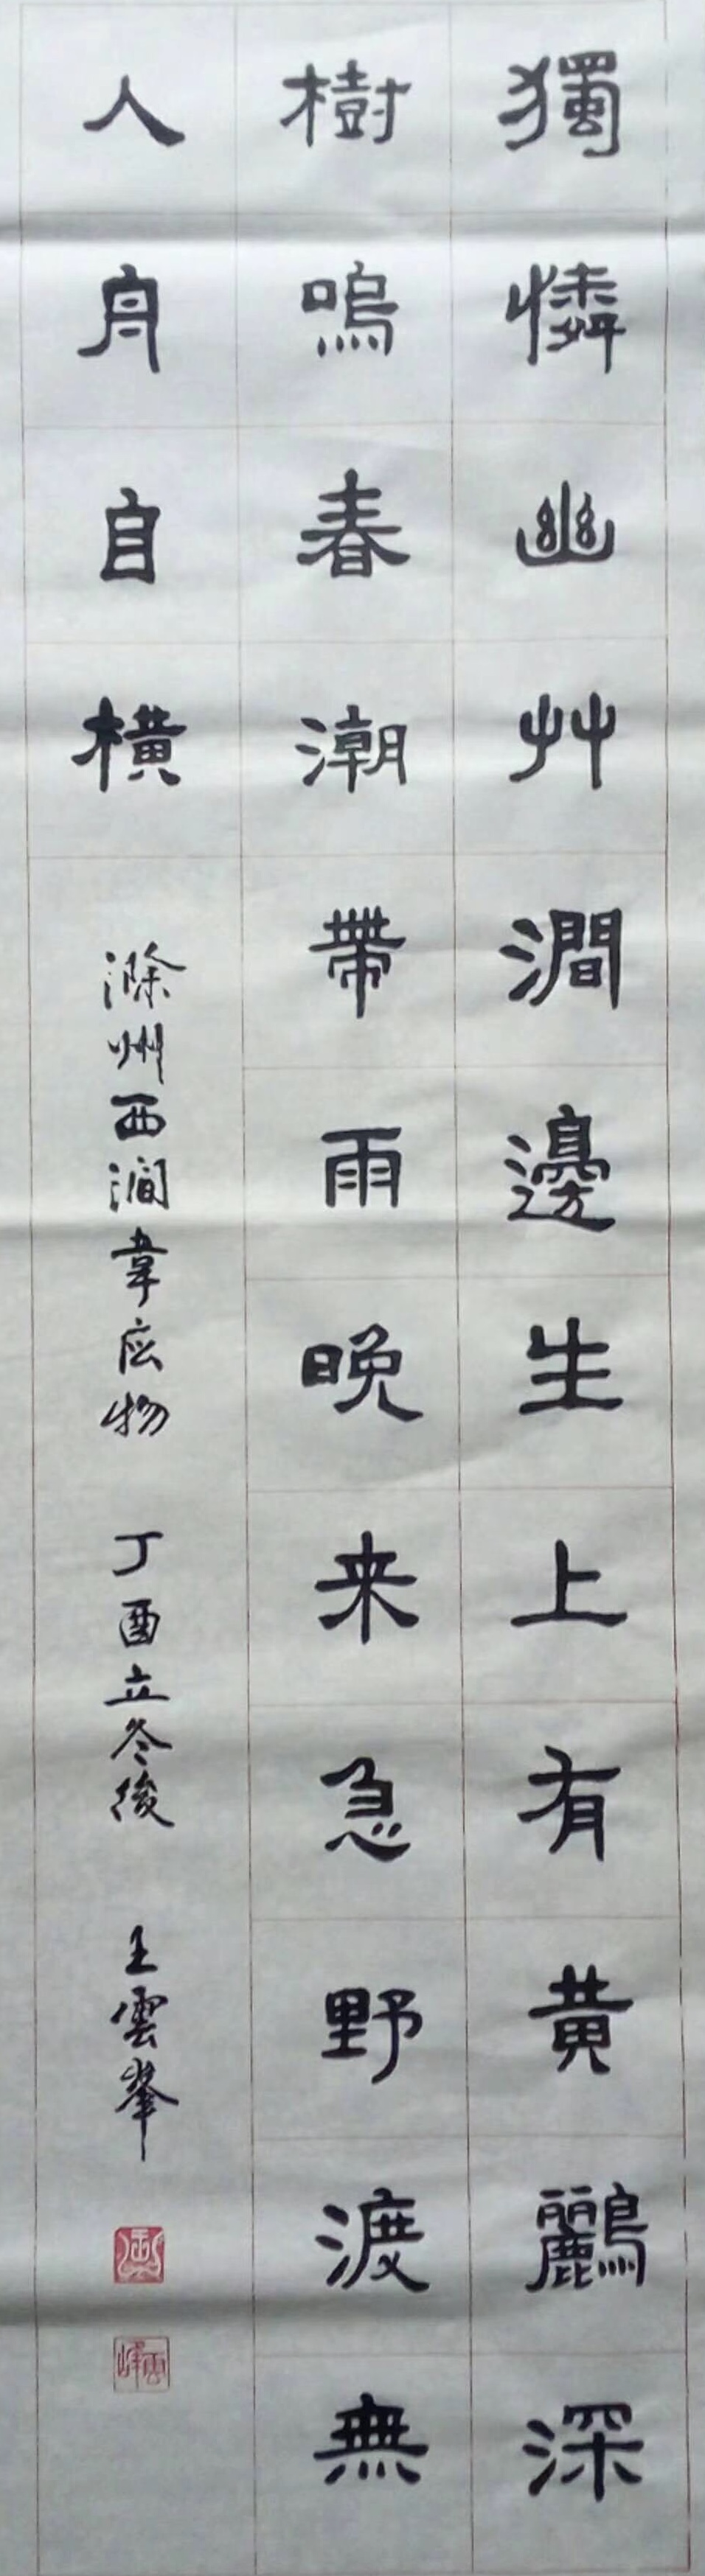 獨憐幽艸澗邊生上有黄鸝深
樹嗚春潮帶雨晚来急野渡無
人舟自横 滁州西澗韋应物 丁酉立冬後 王雲峯
雲峰